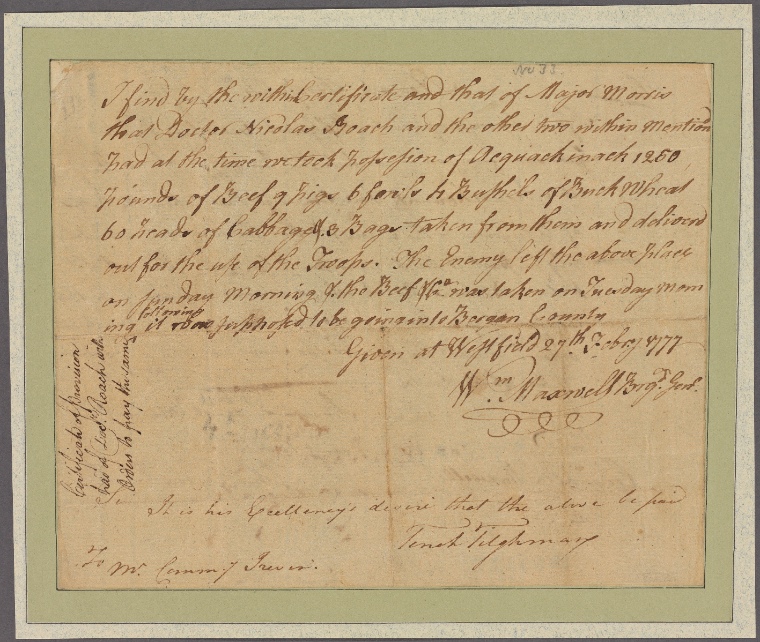 No 33
I find by the within Certificate and that of Major Morris
that Doctor Nicolas Roach and the other two within Mention'd
had at the time we took possession of Acquackinack 1260
pounds of Beef 9 pigs 6 fowls 4 Bushels of Buck Wheat
60 heads of Cabbage & 3 Bags taken from them and deliverd
out for the use of the Troops. The Enemy left the above place
on Sunday Morning & the Beef &ca was taken on Tuesday morn
ing following it was supposed to be going into Bergan County
Given at Westfield 27th Febry 1777
Wm Maxwell Brigr Genl.
Certificate of Provision
had of Docr Roach with
Orders to pay the same
It is his Excellency's desire that the above be paid
Tench Tilghman
To
Mr Commy Irvin.